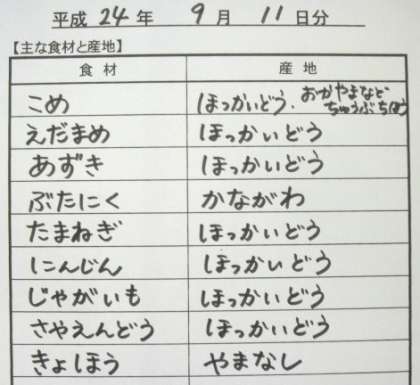 平成 24 年 9 月 11 日分
【主な食材と産地】
食材 産地
こめ ほっかいどう、おかやまなど
ちゅうぶちほう
えだまめ ほっかいどう
あずき ほっかいどう
ぶたにく かながわ
たまねぎ ほっかいどう
にんじん ほっかいどう
じゃがいも ほっかいどう
さやえんどう ほっかいどう
きょほう やまなし